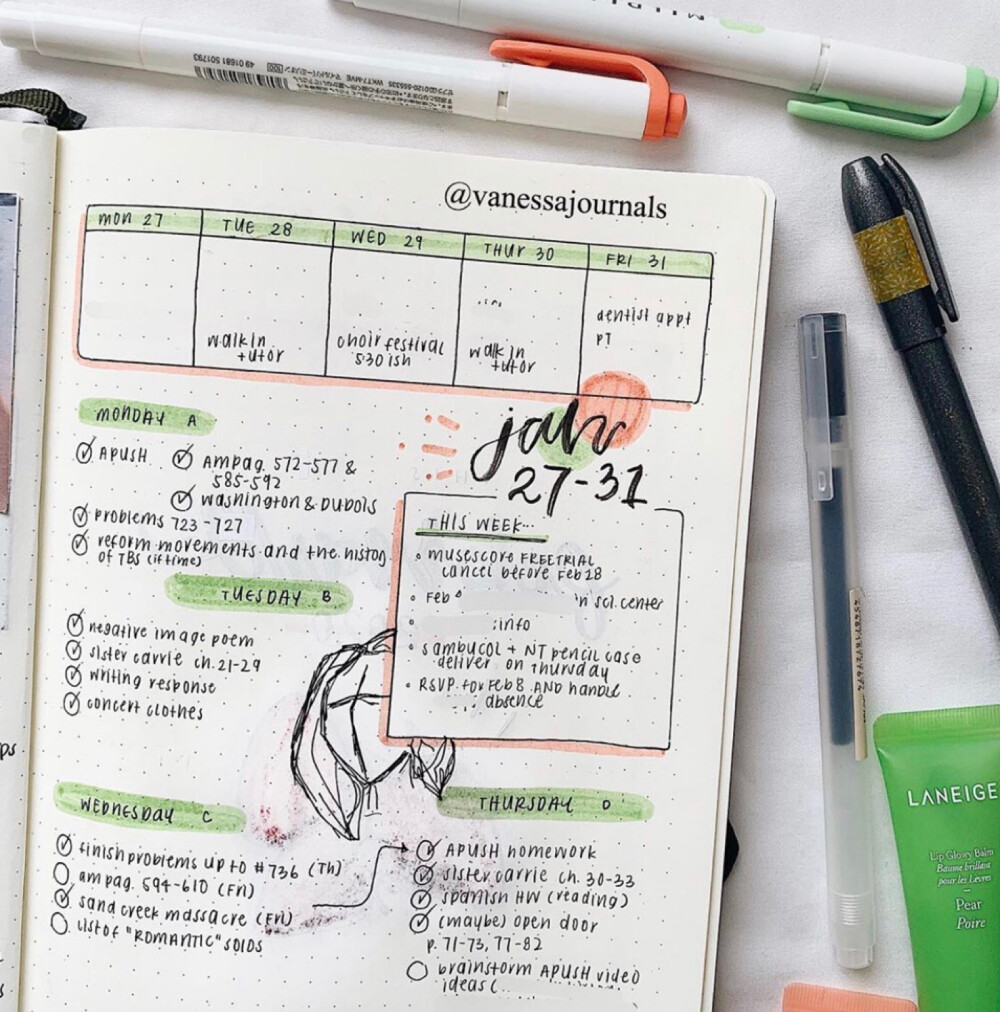 MILDL
4901681 501793
100
WKT7-MVE マイルドライナー
@vanessajournals
MON 27
TUE 28
WED 29
THUR 30
FRI 31
walk in
tutor
choir festival
5:30 ish
walk in
tutor
dentist appt
PT
jan
27-31
MONDAY A
APUSH
AM pag. 572-577 &
585-592
Washington & DuBois
problems 723-727
reform movements and the histog
of TBS (if time)
TUESDAY B
negative image poem
sister carrie ch. 21-29
writing response
concert clothes
THIS WEEK...
musescore FREE TRIAL
cancel before Feb 28
Feb
sci. center
info
sambucol + NT pencil case
deliver on thursday
RSVP for Feb 8 AND handle
absence
WEDNESDAY C
finish problems up to #736 (Th)
am pag. 594-610 (Fri)
sand creek massacre (Fri)
list of "ROMANTIC" solos
THURSDAY D
APUSH homework
sister carrie ch. 30-33
spanish HW (reading)
(maybe) open door
p. 71-73, 77-82
brainstorm APUSH video
ideas (
ps
s
LANEIGE
Lip Glowy Balm
Baume brillant
pour les Lèvres
Pear
Poire